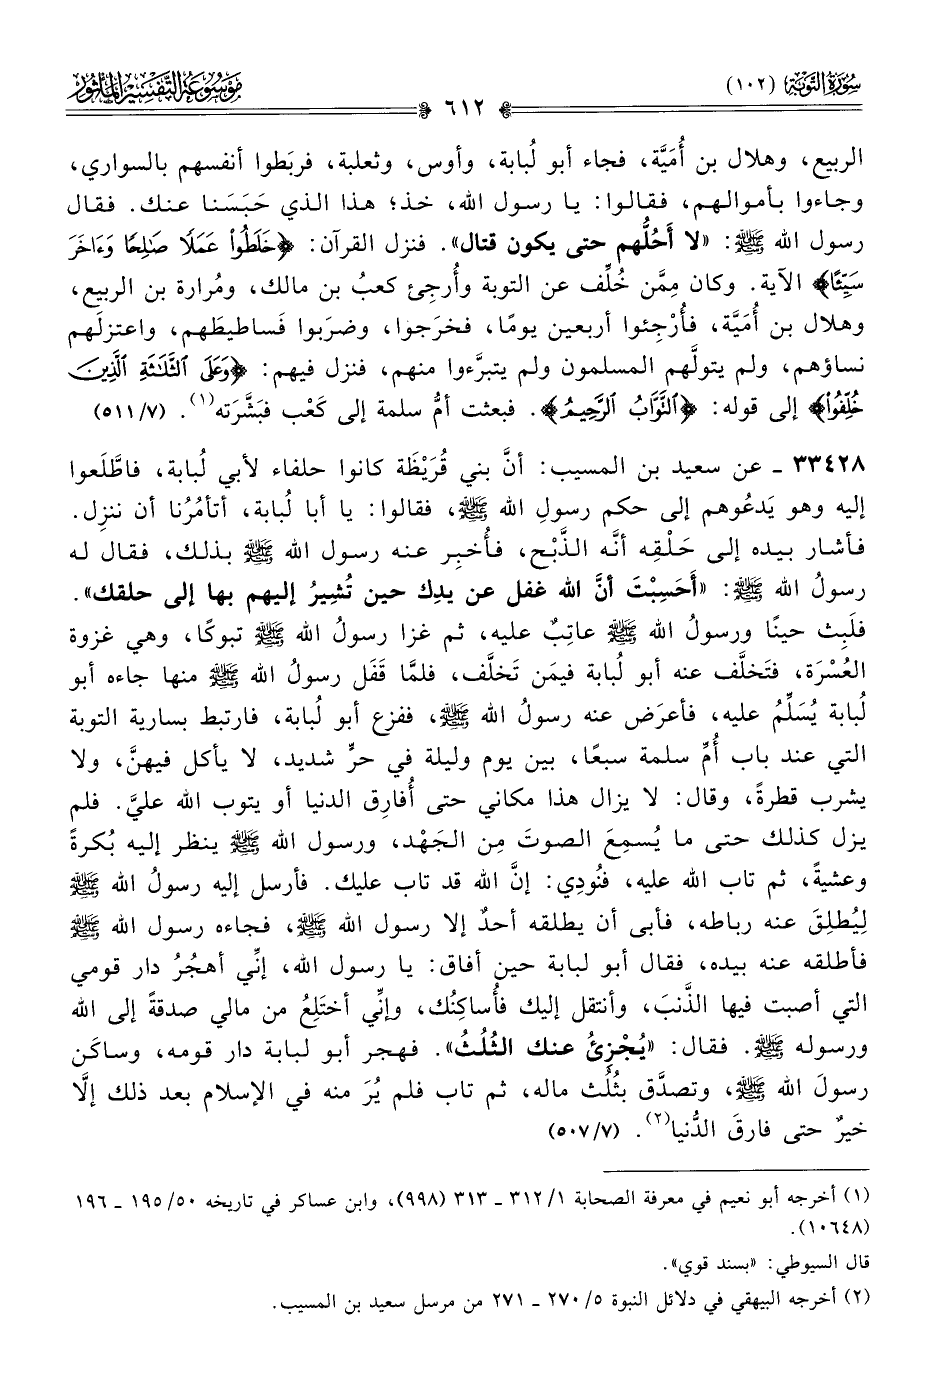 سُورَةُ التَّوْبَة (١٠٢)
٦١٢
مَوْسُوعَةُ التَّفْسِيرِ المَأْثُور
الربيع، وهلال بن أُمَيَّة، فجاء أبو لُبابة، وأوس، وثعلبة، فربَطوا أنفسهم بالسواري،
وجاءوا بأموالهم، فقالوا: يا رسول الله، خذ؛ هذا الذي حَبَسَنا عنك. فقال
رسول الله ﷺ: «لا أَحُلُّهم حتى يكون قتال». فنزل القرآن: ﴿خَلَطُواْ عَمَلًا صَٰلِحًا وَءَاخَرَ
سَيِّئًا﴾ الآية. وكان مِمَّن خُلِّف عن التوبة وأُرجِئ كعبُ بن مالك، ومُرارة بن الربيع،
وهلال بن أُمَيَّة، فأُرْجِئوا أربعين يومًا، فخرَجوا، وضرَبوا فَساطيطَهم، واعتزلَهم
نساؤهم، ولم يتولَّهم المسلمون ولم يتبرَّءوا منهم، فنزل فيهم: ﴿وَعَلَى ٱلثَّلَٰثَةِ ٱلَّذِينَ
خُلِّفُواْ﴾ إلى قوله: ﴿ٱلتَّوَّابُ ٱلرَّحِيمُ﴾. فبعثت أمُّ سلمة إلى كَعْب فبَشَّرَته(١). (٧/ ٥١١)
٣٣٤٢٨ ـ عن سعيد بن المسيب: أنَّ بني قُرَيْظَة كانوا حلفاء لأبي لُبابة، فاطَّلَعوا
إليه وهو يَدعُوهم إلى حكم رسولِ الله ﷺ، فقالوا: يا أبا لُبابة، أتأمُرُنا أن ننزِل.
فأشار بيده إلى حَلْقِه أنَّه الذَّبْح، فأُخبِر عنه رسول الله ﷺ بذلك، فقال له
رسولُ الله ﷺ: «أَحَسِبْتَ أنَّ الله غفل عن يدِك حين تُشِيرُ إليهم بها إلى حلقك».
فلَبِث حينًا ورسولُ الله ﷺ عاتِبٌ عليه، ثم غزا رسولُ الله ﷺ تبوكًا، وهي غزوة
العُسْرَة، فتَخلَّف عنه أبو لُبابة فيمَن تَخلَّف، فلمَّا قَفَل رسولُ الله ﷺ منها جاءه أبو
لُبابة يُسَلِّمُ عليه، فأعرَض عنه رسولُ الله ﷺ، ففزِع أبو لُبابة، فارتبط بسارية التوبة
التي عند باب أُمِّ سلمة سبعًا، بين يوم وليلة في حرٍّ شديد، لا يأكل فيهنَّ، ولا
يشرب قطرةً، وقال: لا يزال هذا مكاني حتى أُفارِق الدنيا أو يتوب الله عليَّ. فلم
يزل كذلك حتى ما يُسمِعَ الصوتَ مِن الجَهْد، ورسول الله ﷺ ينظر إليه بُكرةً
وعشيةً، ثم تاب الله عليه، فنُودِي: إنَّ الله قد تاب عليك. فأرسل إليه رسولُ الله ﷺ
لِيُطلِقَ عنه رباطه، فأبى أن يطلقه أحدٌ إلا رسول الله ﷺ، فجاءه رسول الله ﷺ
فأطلقه عنه بيده، فقال أبو لبابة حين أفاق: يا رسول الله، إنِّي أهجُرُ دار قومي
التي أصبت فيها الذَّنبَ، وأنتقل إليك فأُساكِنُك، وإنِّي أختَلِعُ من مالي صدقةً إلى الله
ورسوله ﷺ. فقال: «يُجْزِئُ عنك الثُلُثُ». فهجر أبو لبابة دار قومه، وساكَن
رسولَ الله ﷺ، وتصدَّق بثُلُث ماله، ثم تاب فلم يُرَ منه في الإسلام بعد ذلك إلَّا
خيرٌ حتى فارقَ الدُّنيا(٢). (٧/ ٥٠٧)
(١) أخرجه أبو نعيم في معرفة الصحابة ١/ ٣١٢ ـ ٣١٣ (٩٩٨)، وابن عساكر في تاريخه ٥٠/ ١٩٥ ـ ١٩٦
(١٠٦٤٨).
قال السيوطي: «بسند قوي».
(٢) أخرجه البيهقي في دلائل النبوة ٥/ ٢٧٠ ـ ٢٧١ من مرسل سعيد بن المسيب.